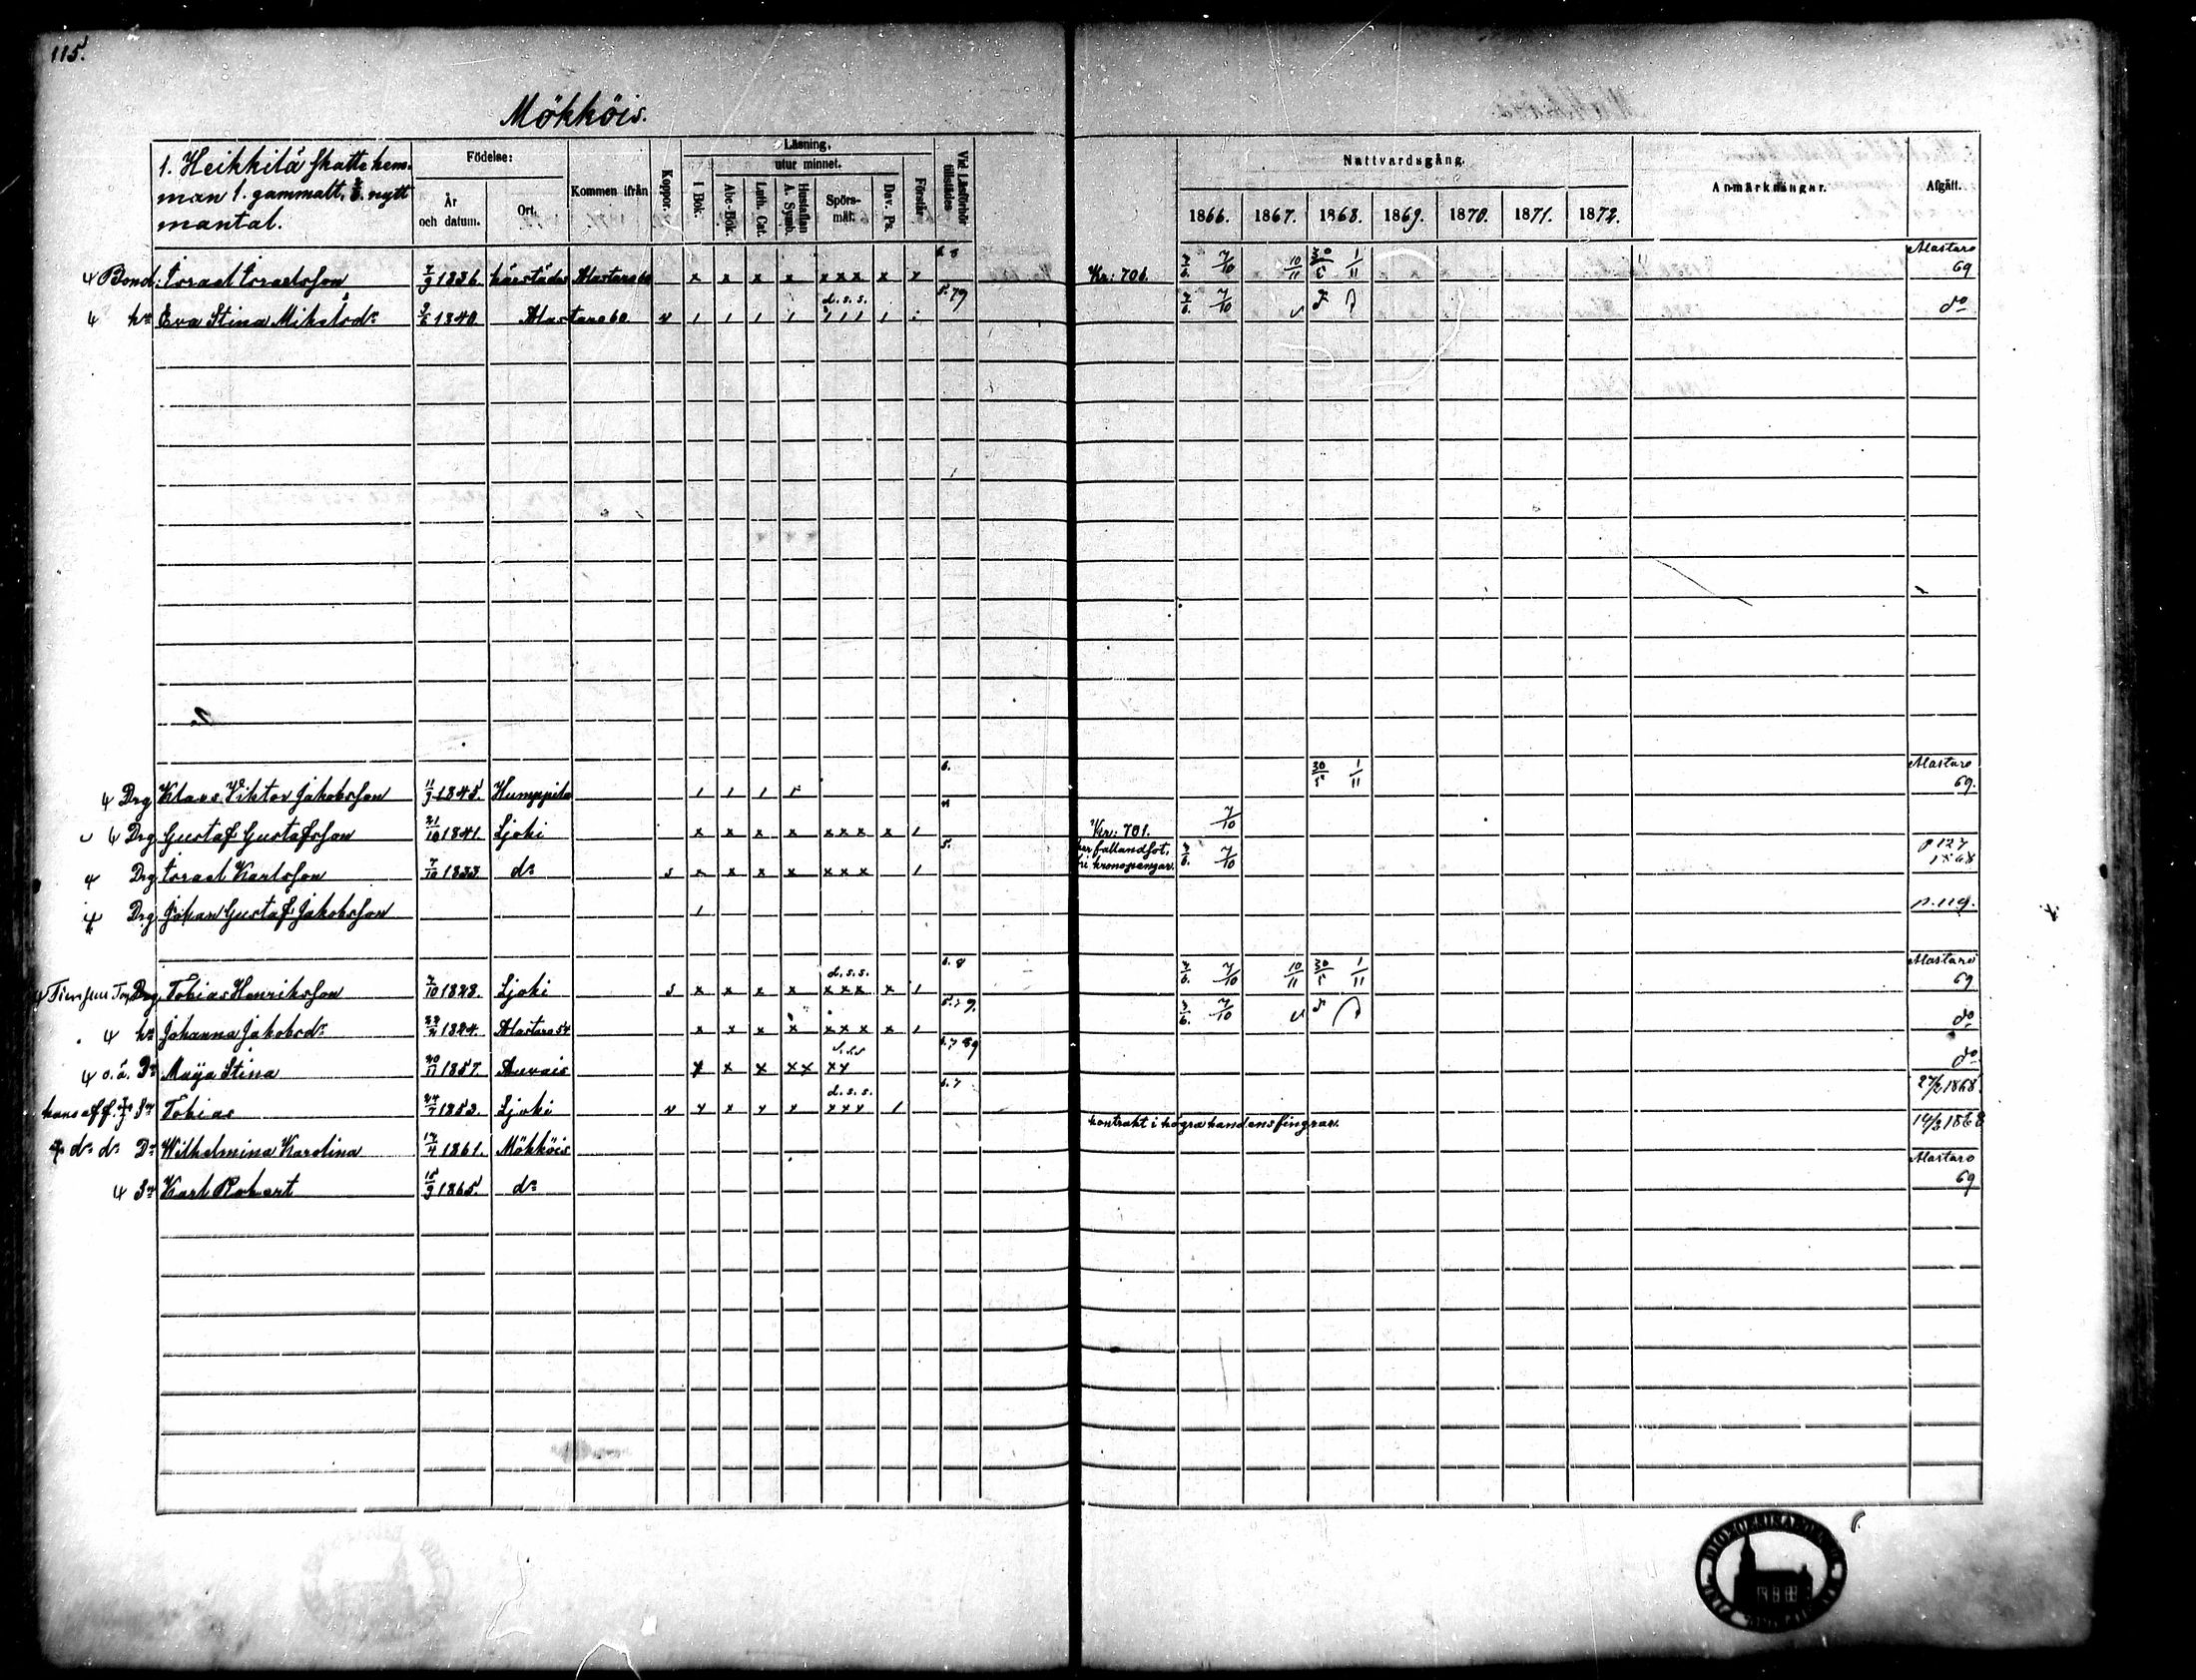 115.
Mökköis.
1. Heikkilä skattehem-
man 1. gammalt, nytt
mantal.
Födelse:
År och datum.
Ort.
Kommen ifrån
Koppor.
Läsning,
utur minnet.
I Bok.
Abc-Bok.
Luth. Cat.
Hustaflan A. Symb.
Spörs-mål.
Dav. Ps.
Förstår
Vid Läsförhör tillstädes
Nattvardsgång.
1866. 1867. 1868. 1869. 1870. 1871. 1872.
Anmärkningar.
Afgått.
Bond: Israel Israelsson 7/9 1836. härstädes Alastaro 60 x x x x xxx x x 6. 8 Kr: 706. 7/10 10/11 30/5 1/11 Alastaro 69
hu Eva Stina Mikelsdr 1840 Alastaro 60 v 1 1 1 1 d.s.s. 111 1 5. 79 7/10 do
Drg Klaes Viktor Jakobsson 11/9 1845. Humppila 1 1 1 6. 30/5 1/11 Alastaro 69.
Drg Gustaf Gustafsson 21/10 1841. Ljoki x x x x xxx x 1 Kr: 701. 7/10
Drg Israel Karlsson 7/10 1833 do s x x x x xxx 1 5. har fallandsot, fri kronopengar. 7/10 p 127 1868
Drg Johan Gustaf Jakobsson 1 p. 119.
Drg Tobias Henriksson 7/10 1828. Ljoki s x x x x d.s.s. xxx x 1 6. 8 7/10 10/11 30/5 1/11 Alastaro 69
hu Johanna Jakobsdr 1824. Alastaro 54 x x x x xxx x 1 7/10 do
o.ä. Dr Maija Stina 20/11 1857. Auvais x x x xx xx 6.7 89 do
hans aff. Sn Tobias 24/7 1853. Ljoki v x x x x d.s.s. xxx 1 6. 7 27/3 1868.
kontrakt i högra handens fingrar.
do do Dr Wilhelmina Karolina 17/4 1861. Mökköis 14/3 1868
Sn Karl Robert 15/9 1865. do Alastaro 69